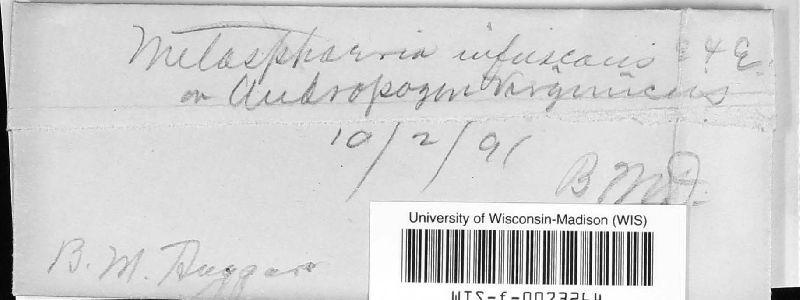 Metasphaeria infuscans E & E.
on Andropogon Virginicus
10/2/91
B M D.
B. M. Duggar
University of Wisconsin-Madison (WIS)